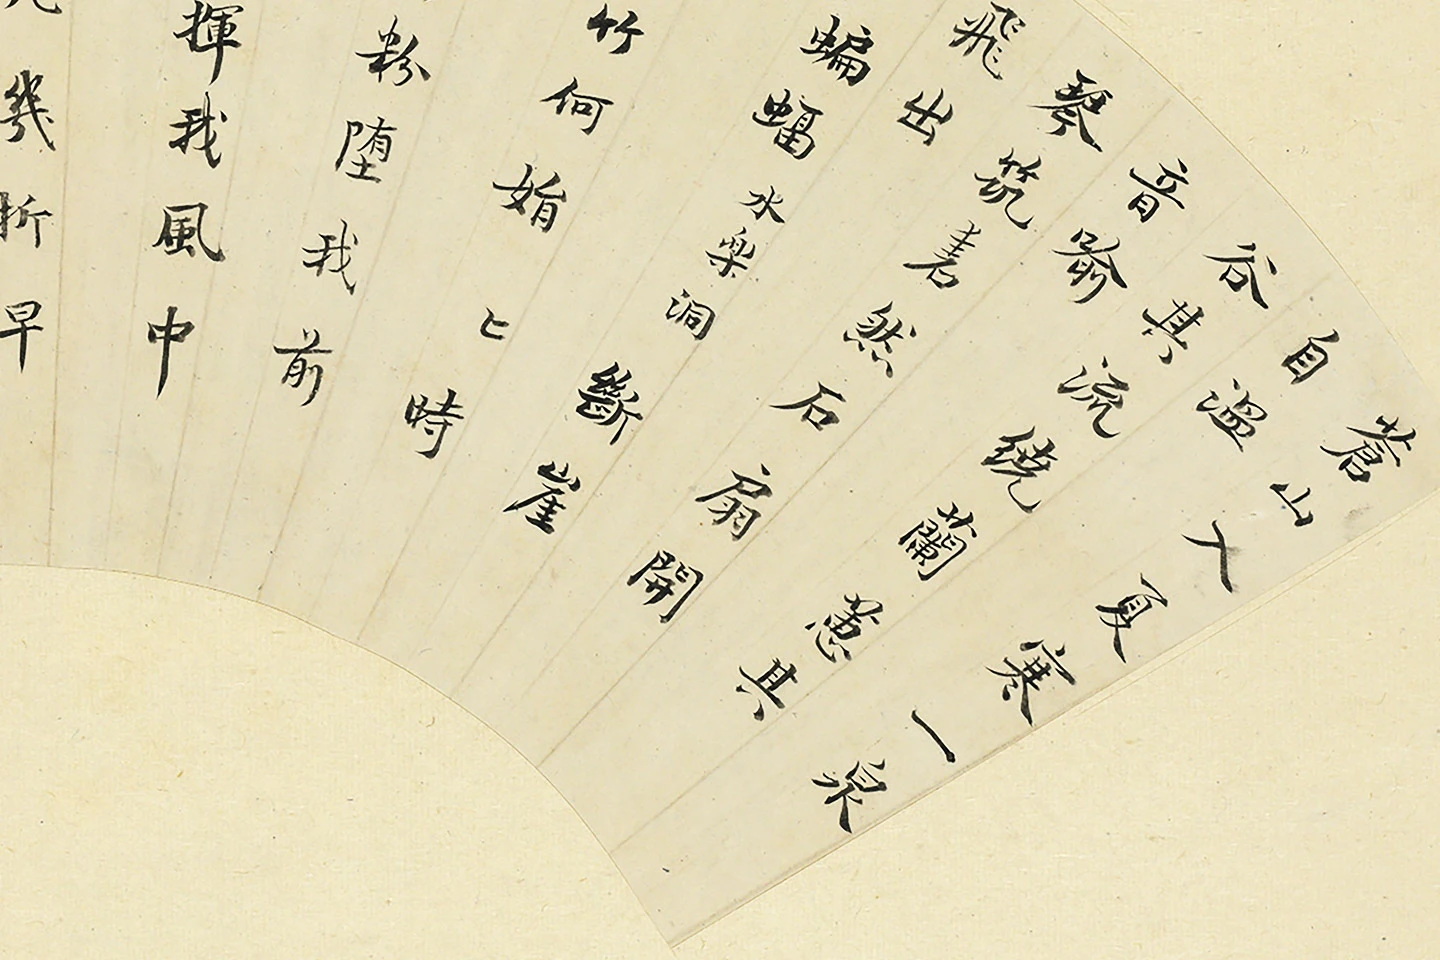 蒼山入夏寒一泉
自溫
谷其流繞蘭蕙其
音喻
琴筑砉然石扇開
飛出
蝙蝠水樂洞斷崖
竹何娟〻時
粉堕我前
揮我風中
幾折早